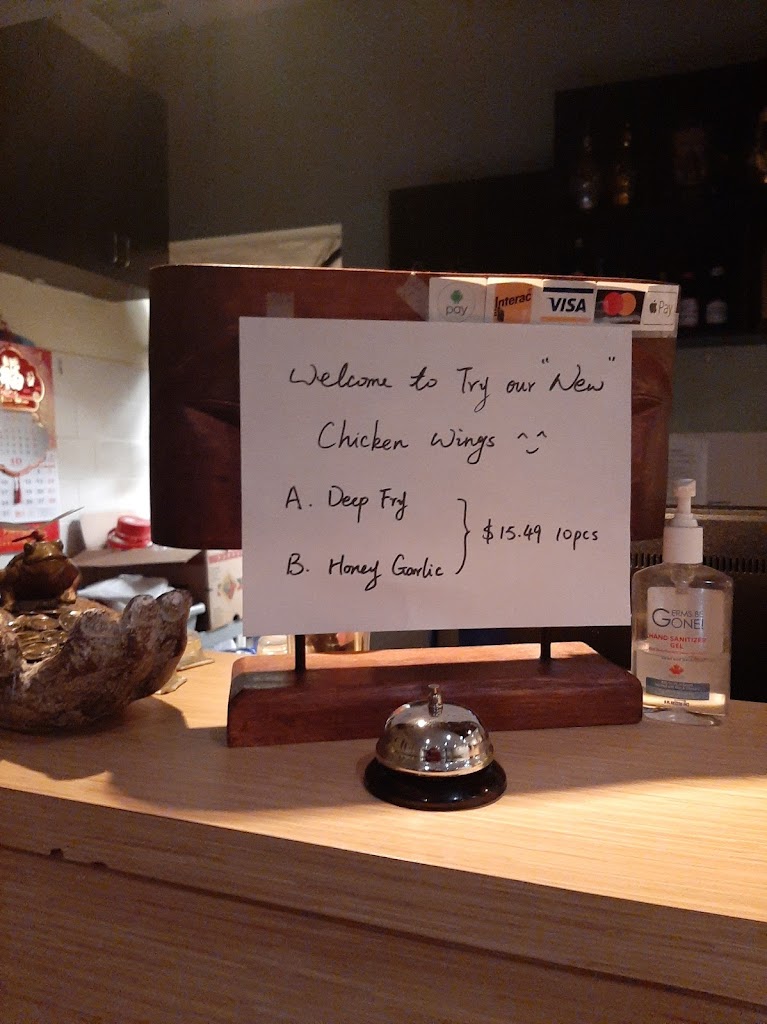 福
pay
Interac
VISA
Pay
Welcome to Try our "New"
Chicken Wings ^‿^
A. Deep Fry
B. Honey Garlic
} $15.49 10pcs
GERMS BE
GONE!
HAND SANITIZER
GEL